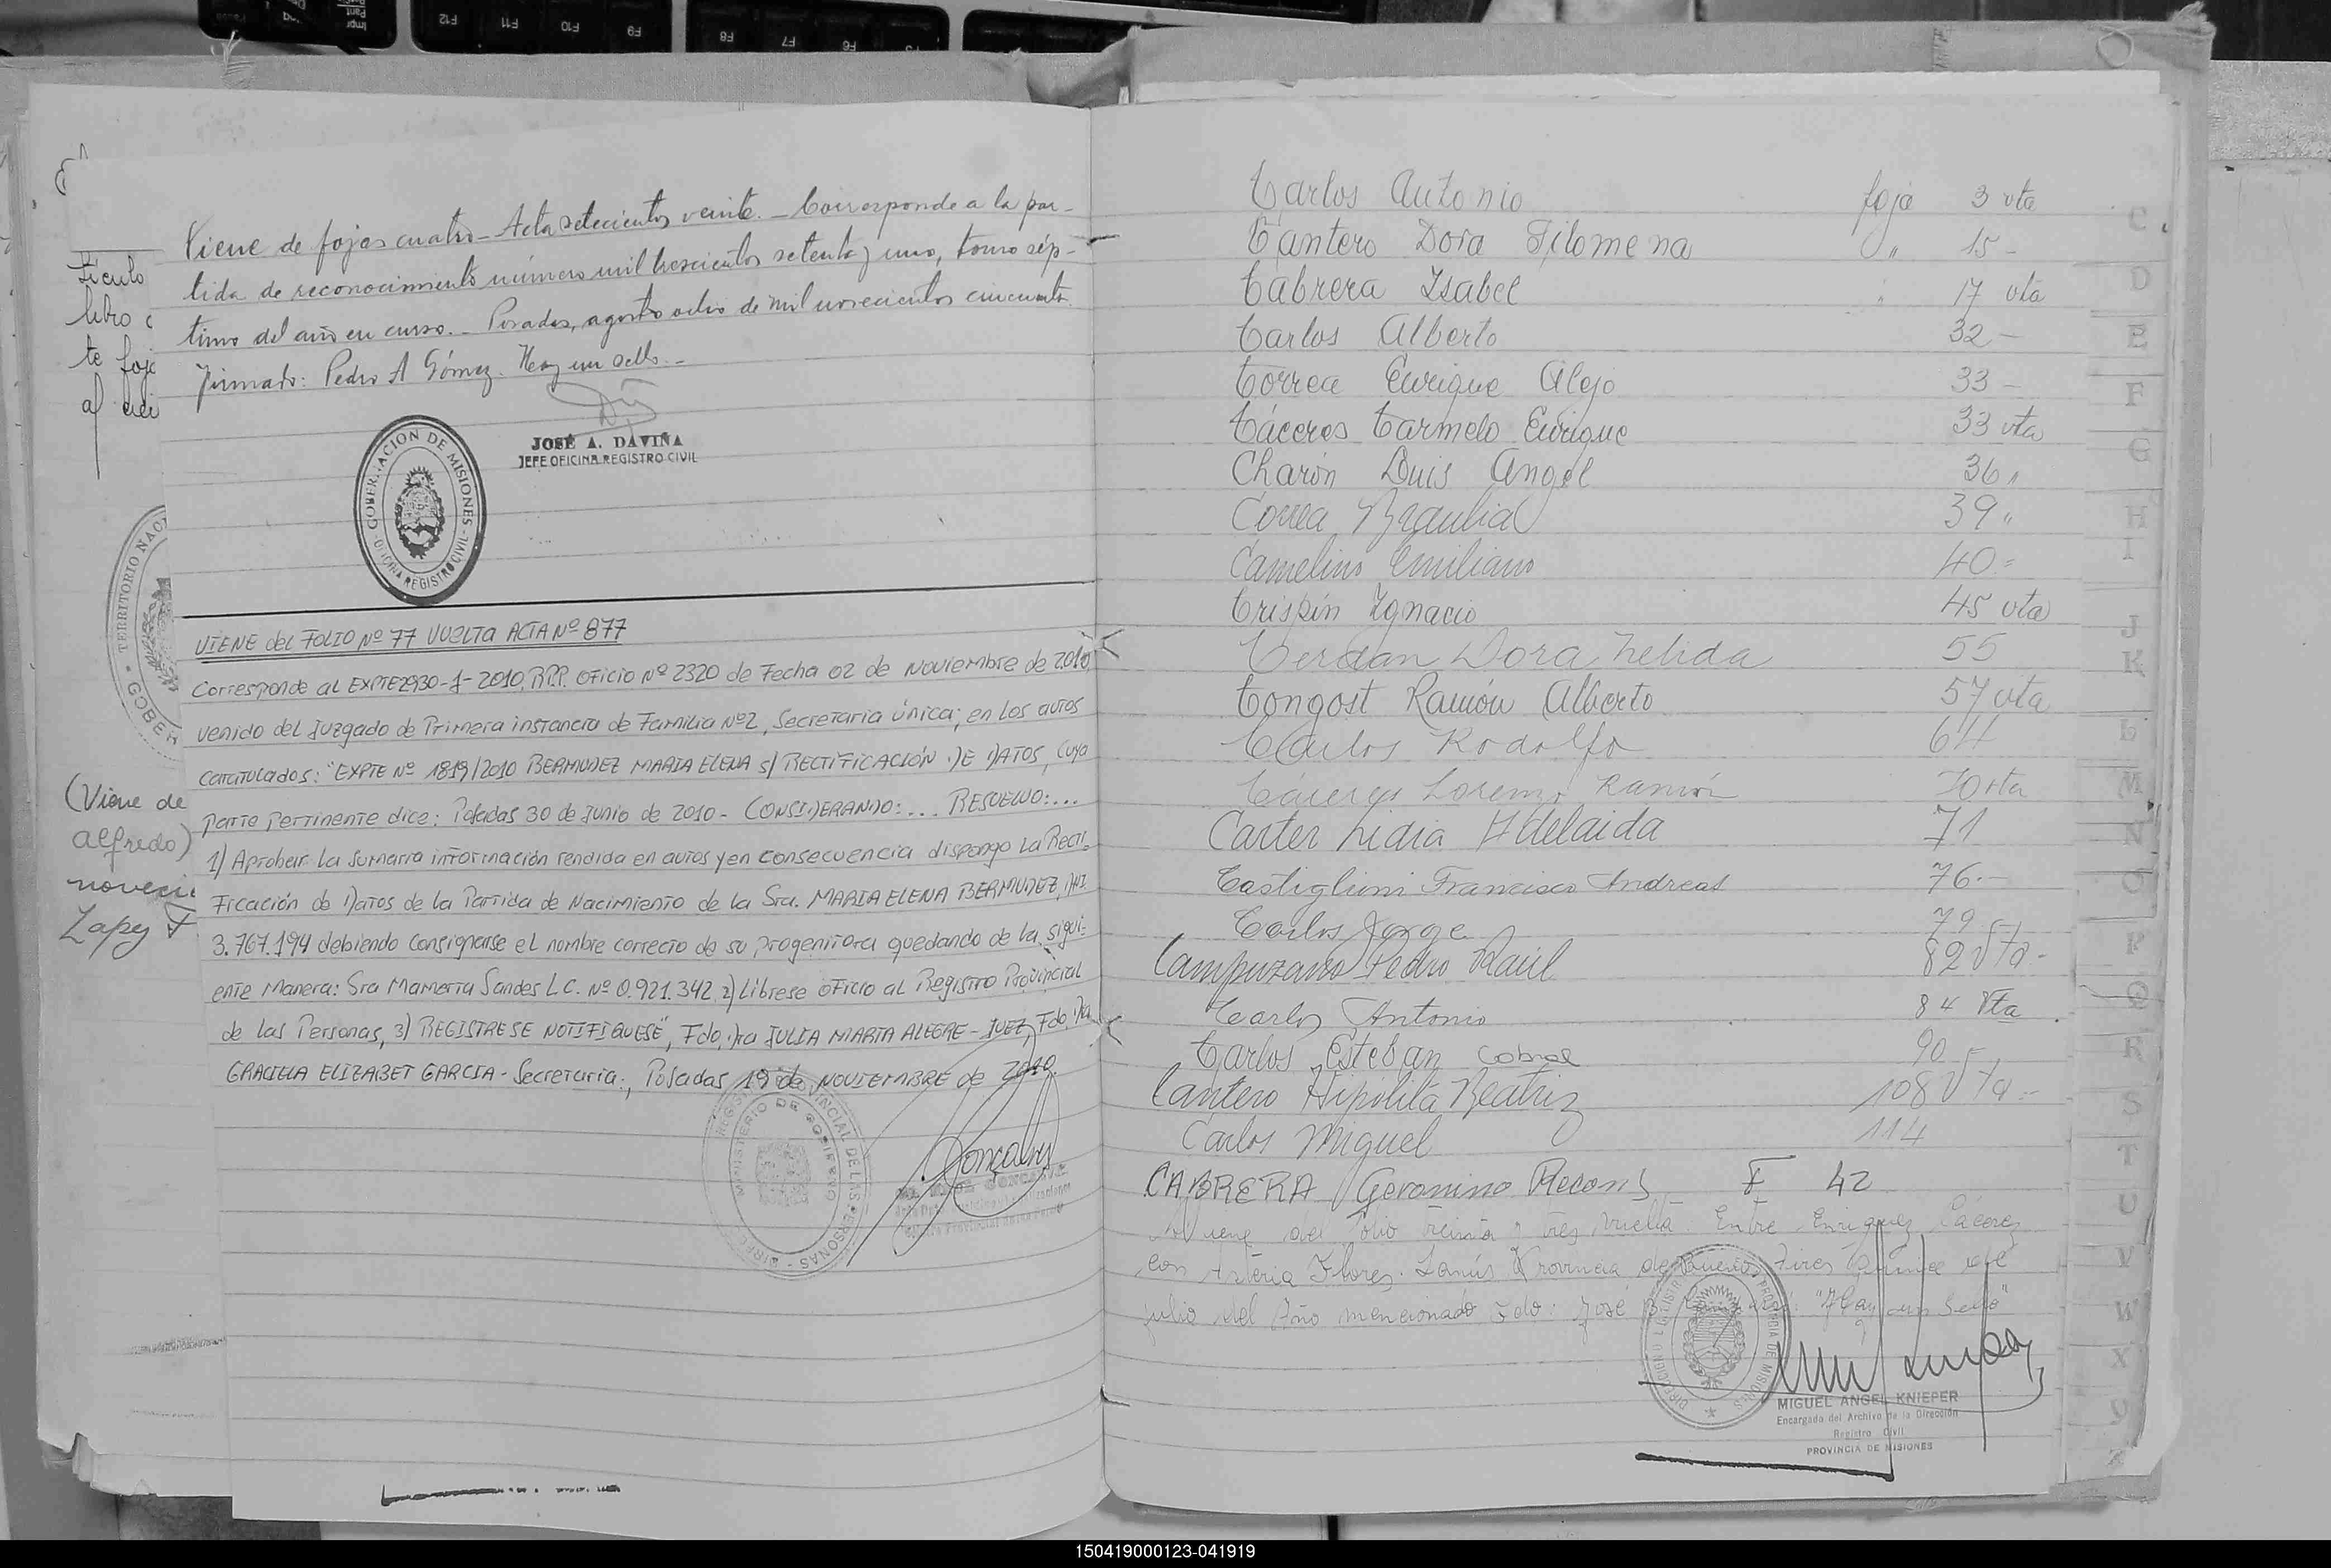 Viene de fojas cuatro - Acta setecientos veinte. - Corresponde a la par-
tida de reconocimiento número mil trescientos setenta y uno, tomo sép-
timo del año en curso. - Posadas, agosto ocho de mil novecientos cincuenta.
Firmado: Pedro A Gómez. Hay un sello. -
JOSÉ A. DAVIÑA
JEFE OFICINA REGISTRO CIVIL
GOBERNACION DE MISIONES - OFICINA REGISTRO CIVIL
tículo
libro
te foja
al
TERRITORIO NAC
GOBER
(Viene de
alfredo)
noveci
VIENE del FOLIO Nº 77 VUELTA ACTA Nº 877
Corresponde al EXPTE 2930-J-2010, R.P.P. OFICIO Nº 2320 de Fecha 02 de Noviembre de 2010,
venido del Juzgado de Primera instancia de Familia Nº2, Secretaria única; en los autos
caratulados: "EXPTE Nº 1819/2010 BERMUDEZ MARIA ELENA s/ RECTIFICACIÓN DE DATOS, cuya
parte pertinente dice: Posadas 30 de Junio de 2010 - CONSIDERANDO: ... RESUELVO: ...
1) Aprobar la sumaria información rendida en autos y en consecuencia dispongo la Recti-
ficación de Datos de la Partida de Nacimiento de la Sra. MARIA ELENA BERMUDEZ, DNI
3.767.194 debiendo consignarse el nombre correcto de su progenitora quedando de la sigui-
ente manera: Sra Mamerta Sandes L.C. Nº 0.921.342, 2) Líbrese oficio al Registro Provincial
de las Personas, 3) REGISTRESE NOTIFIQUESE", Fdo. Dra JULIA MARTA ALEGRE - JUEZ, Fdo. Dra
GRACIELA ELIZABET GARCIA - Secretaria., Posadas 19 de NOVIEMBRE de 2010.
Carlos Antonio foja 3 vta
Cantero Dora Filomena " 15 -
Cabrera Isabel " 17 vta
Carlos Alberto 32 -
Correa Enrique Alejo 33 -
Cáceres Carmelo Enrique 33 vta
Charón Luis Angel 36 "
Correa Braulia 39 "
Camelino Emiliano 40 =
Crispín Ignacio 45 vta
Cerdan Dora Nelida 55
Congost Ramón Alberto 57 vta
Carlos Rodolfo 64
Cáceres Lorenzo Ramón 70 vta
Carter Lidia Adelaida 71
Castiglioni Francisco Andreas 76.-
Carlos Jorge 79
Campuzano Pedro Raúl 82 Vta -
Carlos Antonio 84 Vta
Carlos Esteban Cabral 90
Cantero Hipólita Beatriz 108 Vta -
Carlos Miguel 114
CABRERA Geronimo Recons F 42
viene del folio treinta y tres vuelta Entre Enriquez Cáceres
con Asteria Flores. Lanús Provincia de Buenos Aires Quince de
julio del Año mencionado Fdo: José "Hay un Sello"
MIGUEL ANGEL KNIEPER
Encargado del Archivo de la Dirección
Registro Civil
PROVINCIA DE MISIONES
C
D
E
F
G
H
I
J
K
L
M
N
O
P
Q
R
S
T
U
V
W
X
Y
Z
150419000123-041919